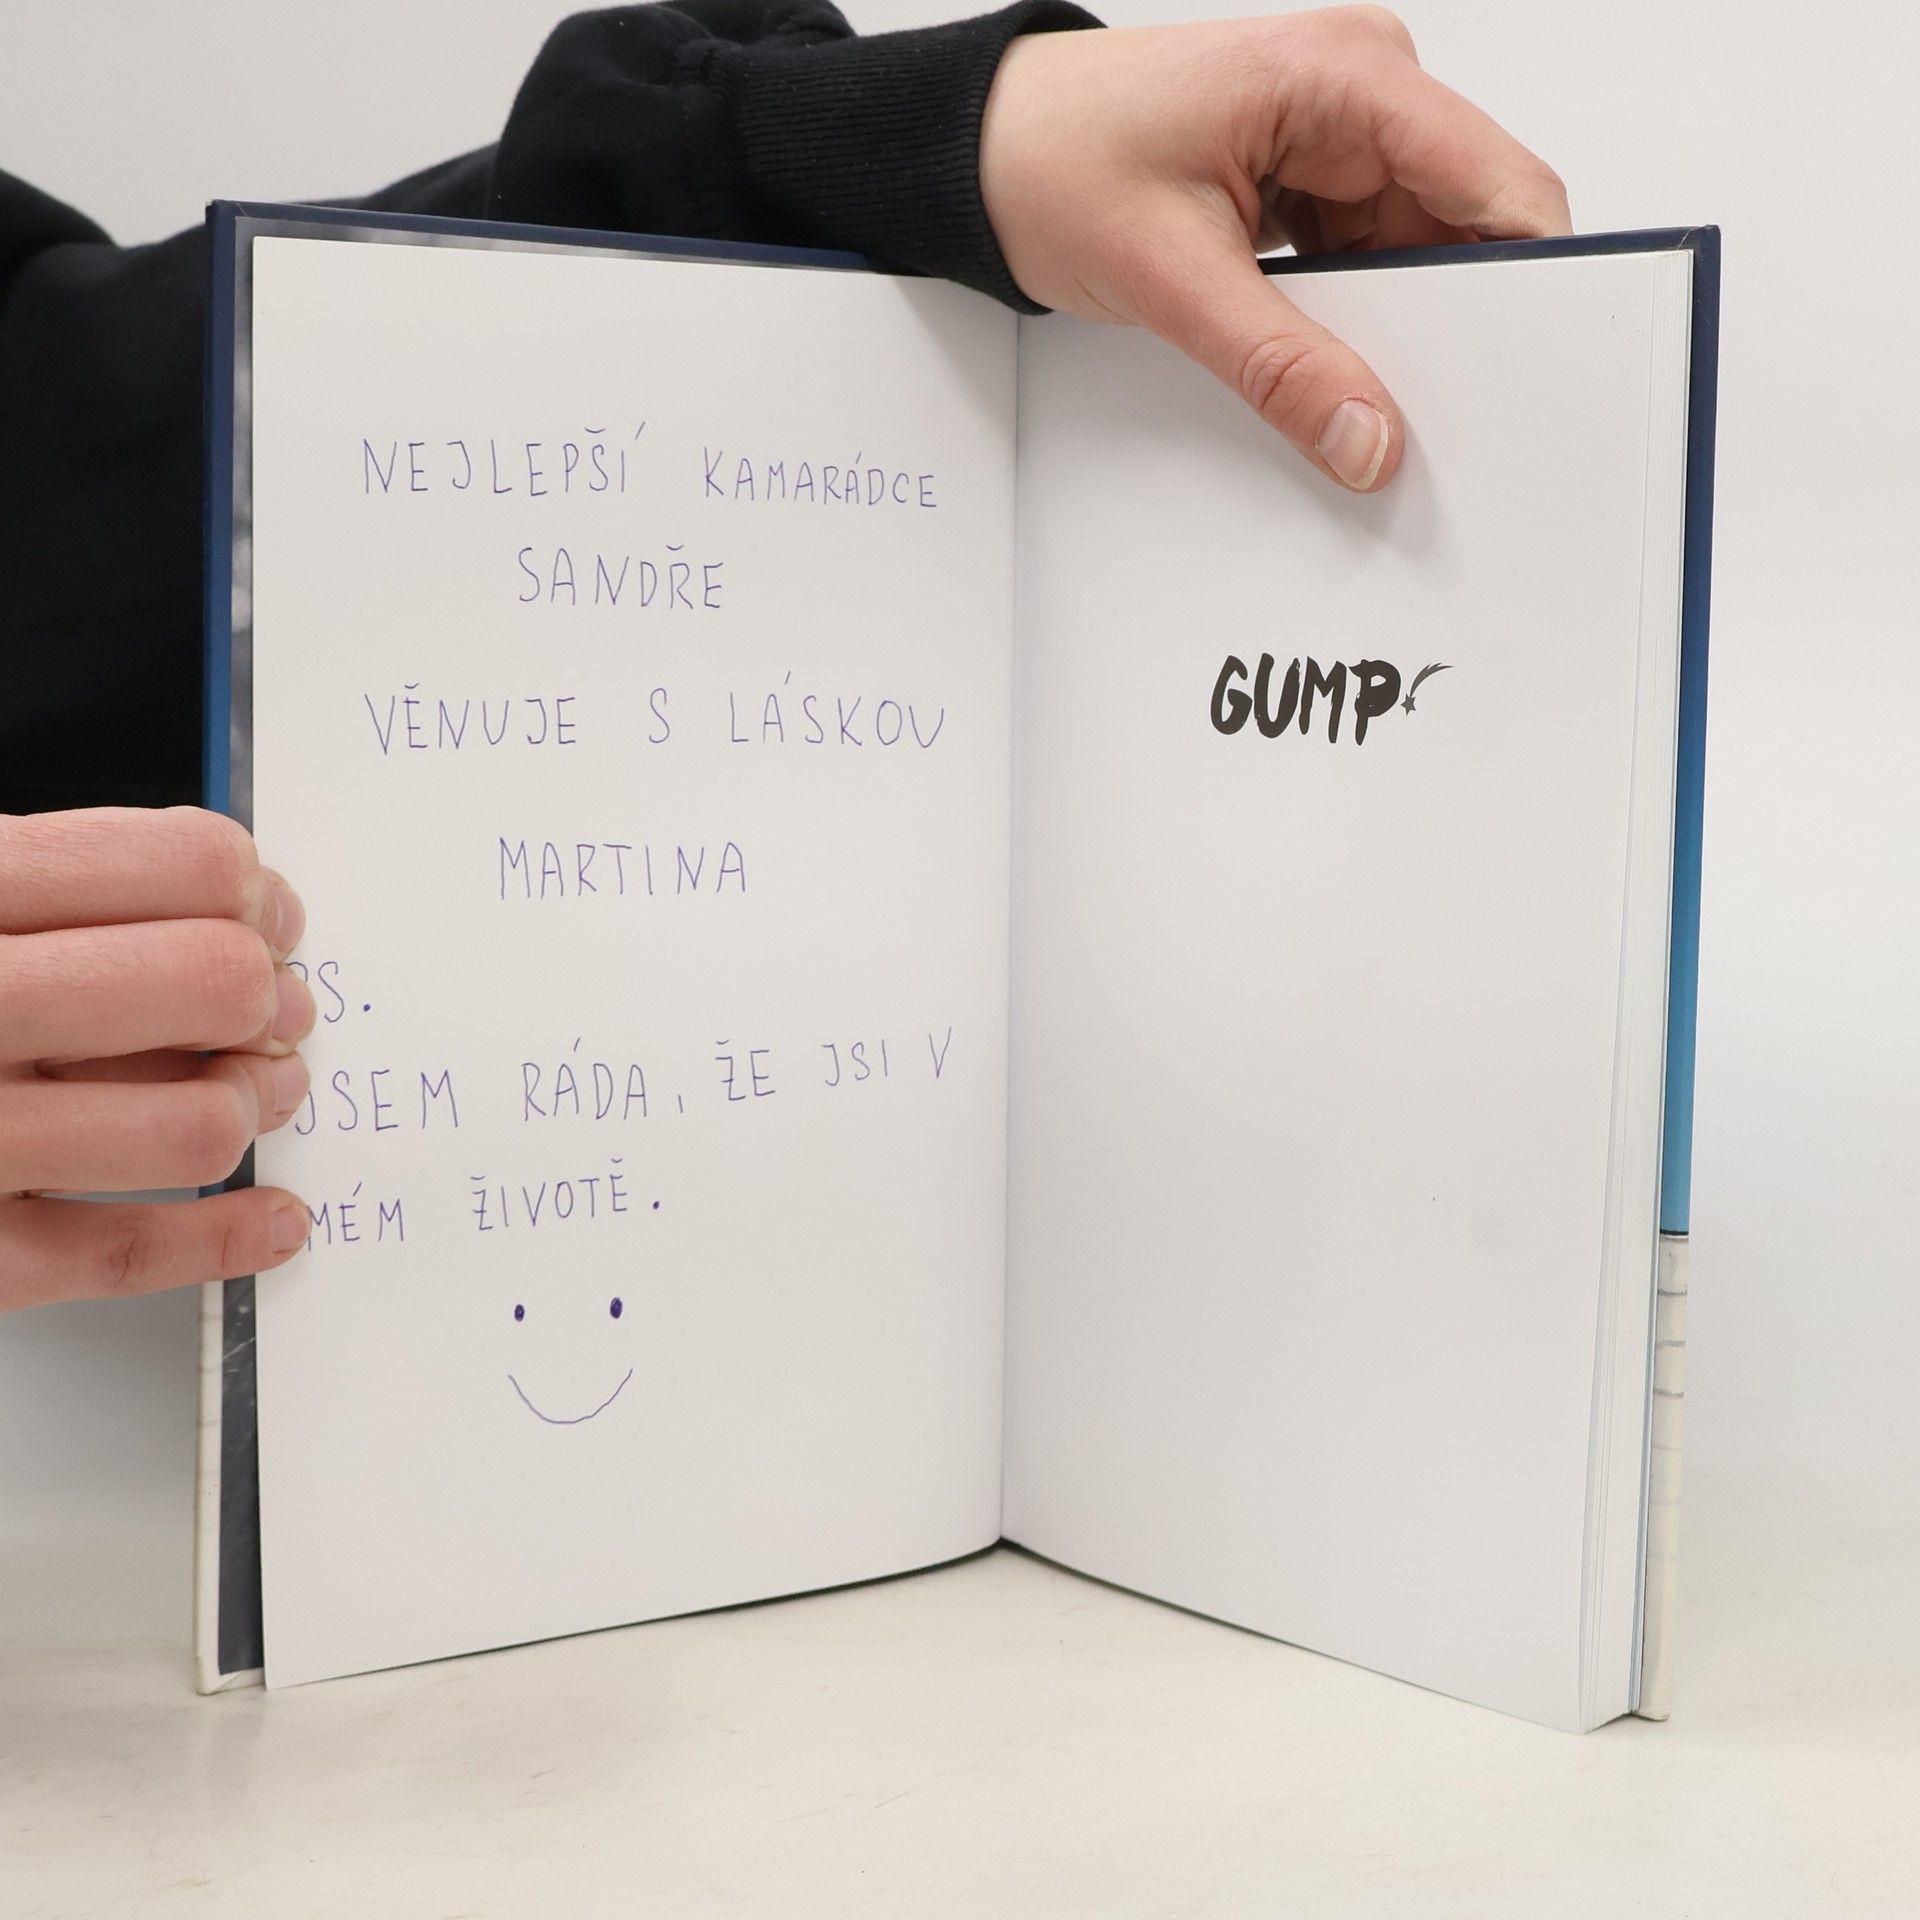 NEJLEPŠÍ KAMARÁDCE
SANDŘE
VĚNUJE S LÁSKOU
MARTINA
PS.
JSEM RÁDA, ŽE JSI V
MÉM ŽIVOTĚ.
GUMP